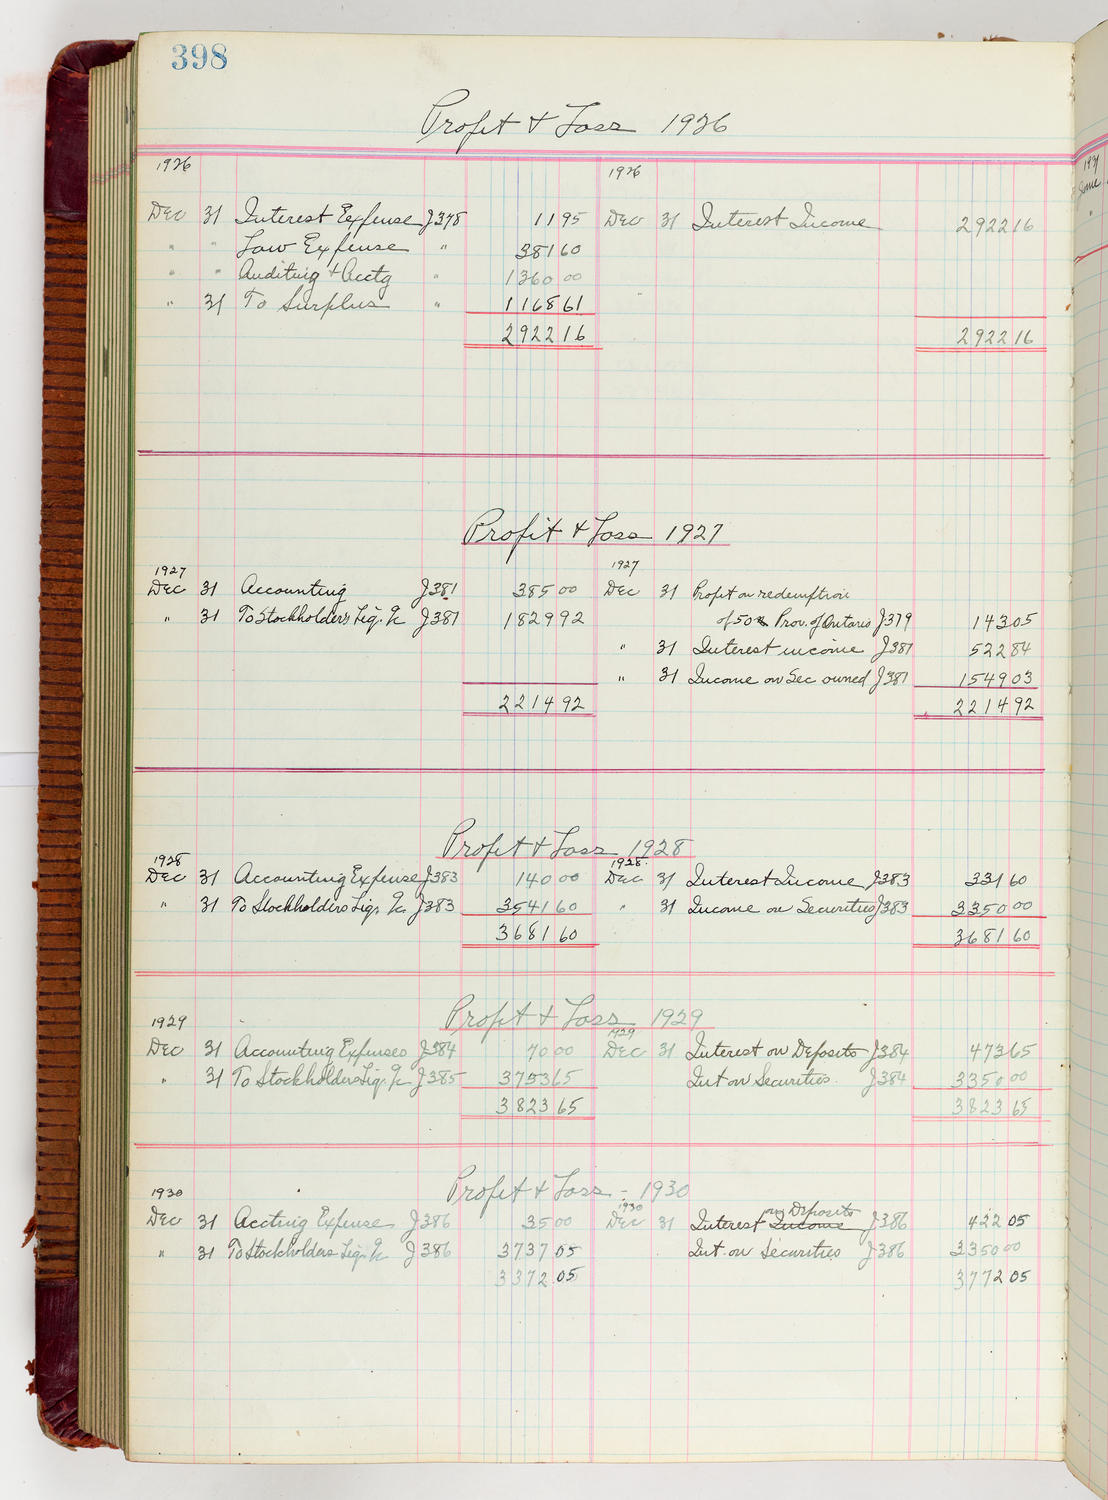 398
Profit & Loss 1926
1926 1926
Dec 31 Interest Expense J378 11 95 Dec 31 Interest Income 2922 16
" " Law Expense " 381 60
" " Auditing & Acctg " 1360 00
" 31 To Surplus " 1168 61
2922 16 2922 16
Profit & Loss 1927
1927 1927
Dec 31 Accounting J381 385 00 Dec 31 Profit on redemption
" 31 To Stockholders Liq. a/c J381 1829 92 of 50 Prov. of Ontario J379 143 05
" 31 Interest income J381 522 84
" 31 Income on Sec owned J381 1549 03
2214 92 2214 92
Profit & Loss 1928
1928 1928
Dec 31 Accounting Expense J383 140 00 Dec 31 Interest Income J383 331 60
" 31 To Stockholders Liq. a/c J383 3541 60 " 31 Income on Securities J383 3350 00
3681 60 3681 60
Profit & Loss 1929
1929 1929
Dec 31 Accounting Expenses J384 70 00 Dec 31 Interest on Deposits J384 473 65
" 31 To Stockholders Liq. a/c J385 3753 65 Int on Securities J384 3350 00
3823 65 3823 65
Profit & Loss - 1930
1930 1930 on Deposits
Dec 31 Accting Expense J386 35 00 Dec 31 Interest Income J386 422 05
" 31 To Stockholders Liq. a/c J386 3737 05 Int. on Securities J386 3350 00
3372 05 3772 05